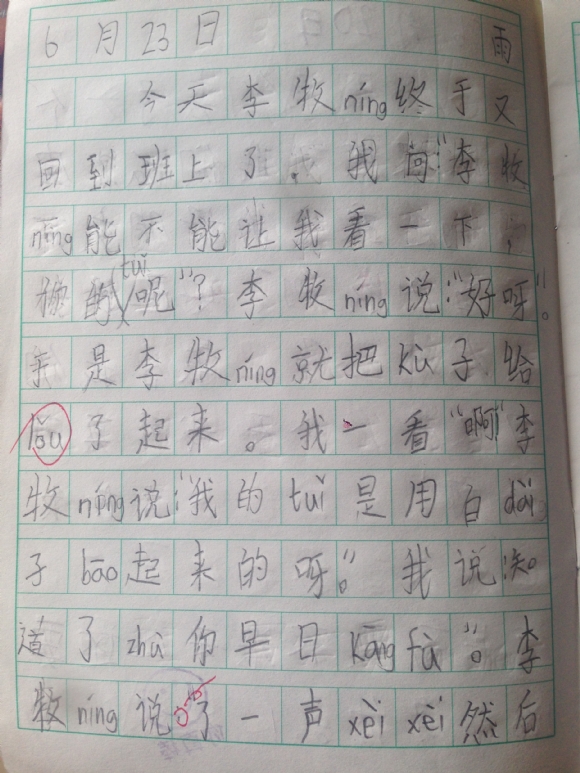 6月23日 雨
今天李牧níng终于又
回到班上了，我问:“李牧
níng能不能让我看一下，
你的tuǐ呢”？李牧níng说:“好呀”。
于是李牧níng就把Kù子给
lōu了起来。我一看“啊”李
牧níng说:“我的tuǐ是用白dài
子bāo起来的呀”。我说:知
道了zhù你早日Kāng fù”。李
牧níng说了一声xèi xèi然后